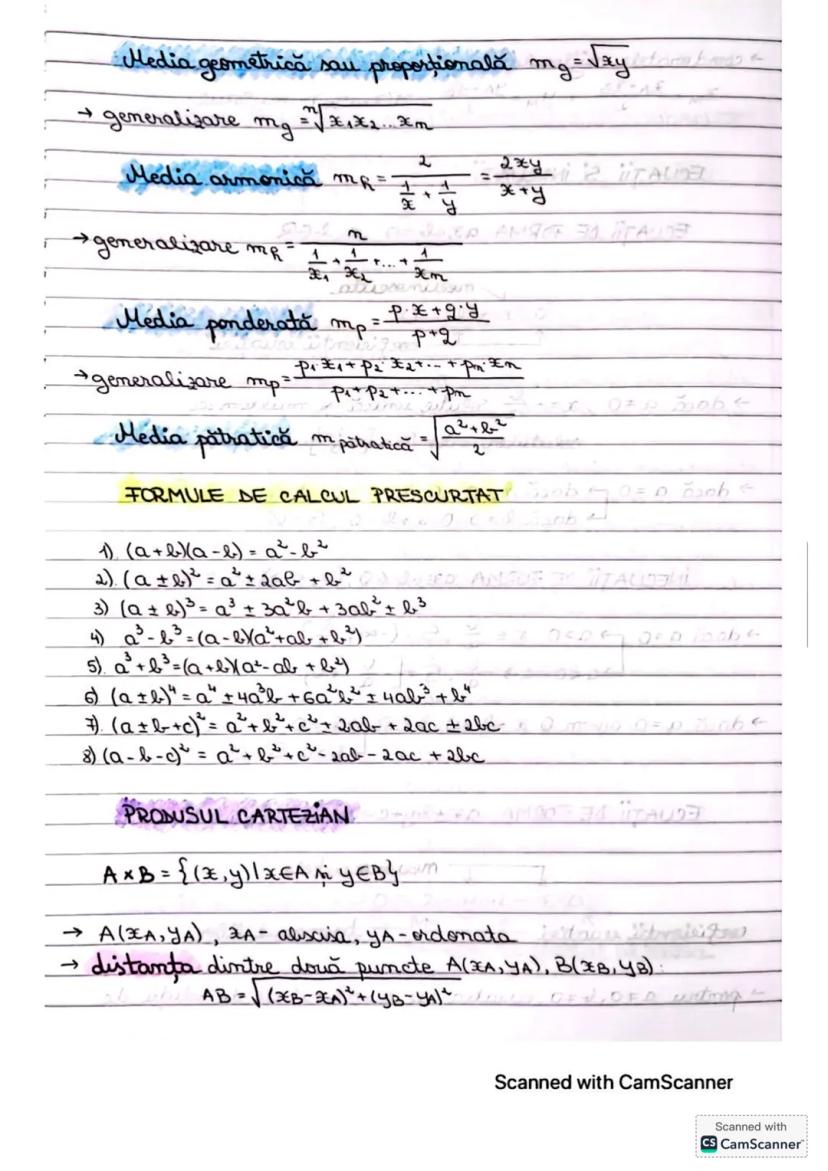 Media geometrică sau proporțională m_g = √xy
→ generalizare m_g = ⁿ√x₁x₂...xₙ
Media armonică m_R = 2/(1/x + 1/y) = 2xy/(x+y)
→ generalizare m_R = n/(1/x₁ + 1/x₂ + ... + 1/xₙ)
Media ponderată m_p = (p·x + q·y)/(p+q)
→ generalizare m_p = (p₁·x₁ + p₂·x₂ + ... + pₙ·xₙ)/(p₁ + p₂ + ... + pₙ)
Media pătratică m pătratică = √((a² + b²)/2)
FORMULE DE CALCUL PRESCURTAT
1). (a+b)(a-b) = a² - b²
2). (a ± b)² = a² ± 2ab + b²
3) (a ± b)³ = a³ ± 3a²b + 3ab² ± b³
4) a³ - b³ = (a-b)(a² + ab + b²)
5). a³ + b³ = (a+b)(a² - ab + b²)
6) (a ± b)⁴ = a⁴ ± 4a³b + 6a²b² ± 4ab³ + b⁴
7). (a ± b + c)² = a² + b² + c² ± 2ab + 2ac ± 2bc
8) (a - b - c)² = a² + b² + c² - 2ab - 2ac + 2bc
PRODUSUL CARTEZIAN
A × B = {(x,y) | x∈A și y∈B}
→ A(x_A, y_A), x_A - abscisa, y_A - ordonata
→ distanța dintre două puncte A(x_A, y_A), B(x_B, y_B):
AB = √((x_B - x_A)² + (y_B - y_A)²)
Scanned with CamScanner
Scanned with
CS CamScanner